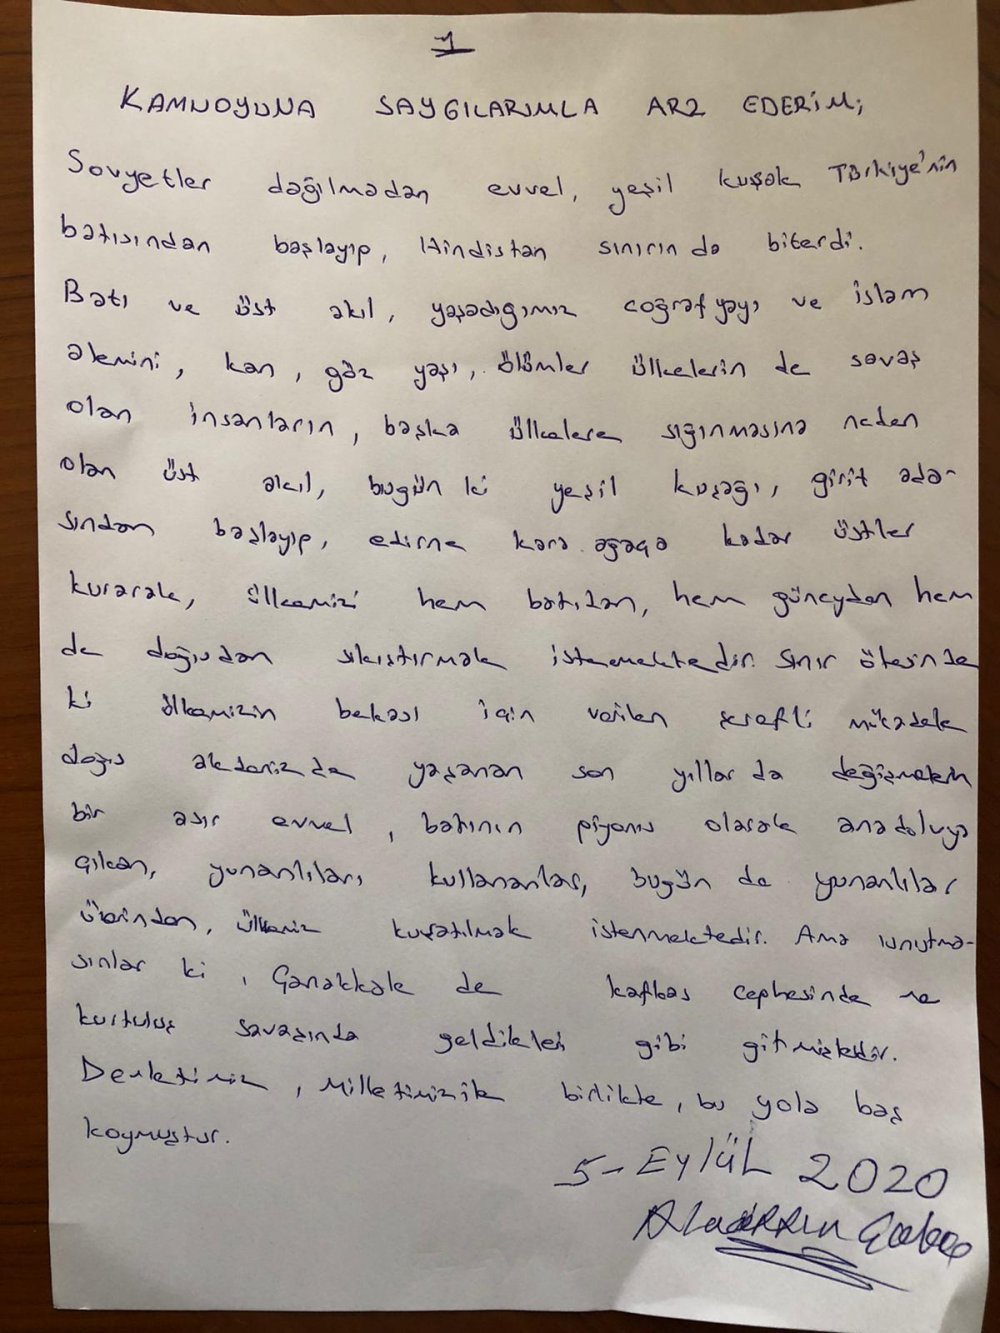 1
KAMUOYUNA SAYGILARIMLA ARZ EDERİM;
Sovyetler dağılmadan evvel, yeşil kuşak Türkiye'nin
batısından başlayıp, Hindistan sınırın da biterdi.
Batı ve üst akıl, yaşadığımız coğrafyayı ve islam
alemini, kan, göz yaşı, ölümler ülkelerin de savaş
olan insanların, başka ülkelere sığınmasına neden
olan üst akıl, bugün ki yeşil kuşağı, girit ada-
sından başlayıp, edirne kara ağaça kadar üstler
kurarak, ülkemizi hem batıdan, hem güneyden hem
de doğudan sıkıştırmak istemektedir. Sınır ötesinde
ki ülkemizin bekası için verilen şerefli mücadele
doğu akdenizde yaşanan son yıllar da değişmekte
bir asır evvel, batının piyonu olarak anadoluya
çıkan, yunanlıları kullananlar, bugün de yunanlılar
üzerinden, ülkemiz kuşatılmak istenmektedir. Ama unutma-
sınlar ki, Çanakkale de kafkas cephesinde ve
kurtuluş savaşında geldikleri gibi gitmişlerdir.
Devletimiz, Milletimizle birlikte, bu yola baş
koymuştur.
5- Eylül 2020